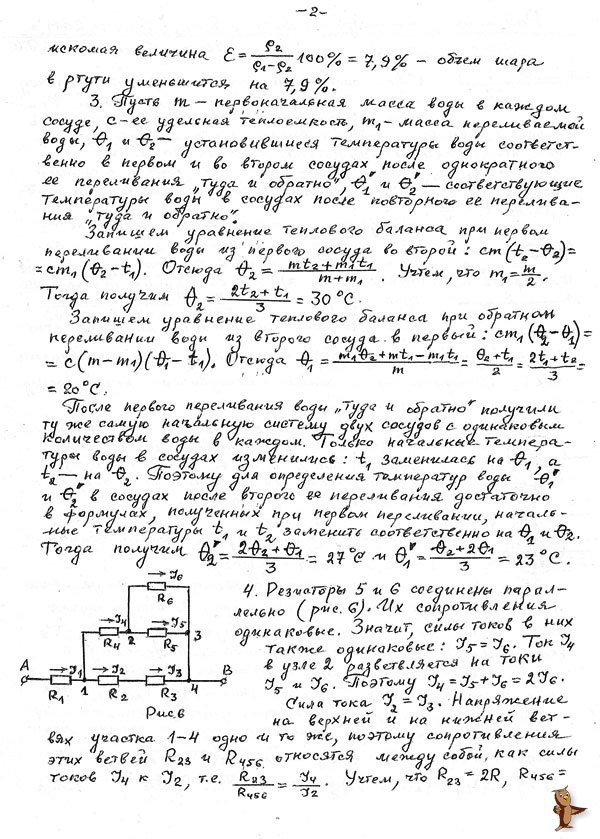 -2-
искомая величина Ɛ = ρ2/(ρ1-ρ2) 100% = 7,9% - объем шара
в ртути уменьшится на 7,9%.
3. Пусть m - первоначальная масса воды в каждом
сосуде, c - ее удельная теплоемкость, m1 - масса переливаемой
воды, θ1 и θ2 - установившиеся температуры воды соответст-
венно в первом и во втором сосудах после однократного
ее переливания „туда и обратно", θ1" и θ2" - соответствующие
температуры воды в сосудах после повторного ее перелива-
ния „туда и обратно".
Запишем уравнение теплового баланса при первом
переливании воды из первого сосуда во второй: cm(t2-θ2)=
=cm1(θ2-t1). Отсюда θ2 = (mt2+m1t1)/(m+m1). Учтем, что m1=m/2.
Тогда получим θ2 = (2t2+t1)/3 = 30°C.
Запишем уравнение теплового баланса при обратном
переливании воды из второго сосуда в первый: cm1(θ2-θ1)=
= c(m-m1)(θ1-t1). Отсюда θ1 = (m1θ2+mt1-m1t1)/m = (θ2+t1)/2 = (2t1+t2)/3 =
= 20°C.
После первого переливания воды „туда и обратно" получили
ту же самую начальную систему двух сосудов с одинаковым
количеством воды в каждом. Только начальные темпера-
туры воды в сосудах изменились: t1 заменилась на θ1, а
t2 - на θ2. Поэтому для определения температур воды θ1"
и θ2" в сосудах после второго ее переливания достаточно
в формулах, полученных при первом переливании, началь-
ные температуры t1 и t2 заменить соответственно на θ1 и θ2.
Тогда получим θ2" = (2θ2+θ1)/3 = 27°C и θ1" = (θ2+2θ1)/3 = 23°C.
J6
R6
J4
R4
2
J5
R5
3
A
J1
R1
1
J2
R2
J3
R3
4
B
Рис 6
4. Резисторы 5 и 6 соединены парал-
лельно (рис. 6). Их сопротивления
одинаковые. Значит, силы токов в них
также одинаковые: J5 = J6. Ток J4
в узле 2 разветвляется на токи
J5 и J6. Поэтому J4 = J5+J6 = 2J6.
Сила тока J2 = J3. Напряжение
на верхней и на нижней вет-
вях участка 1-4 одно и то же, поэтому сопротивления
этих ветвей R23 и R456 относятся между собой, как силы
токов J4 к J2, т.е. R23/R456 = J4/J2. Учтем, что R23 = 2R, R456 =